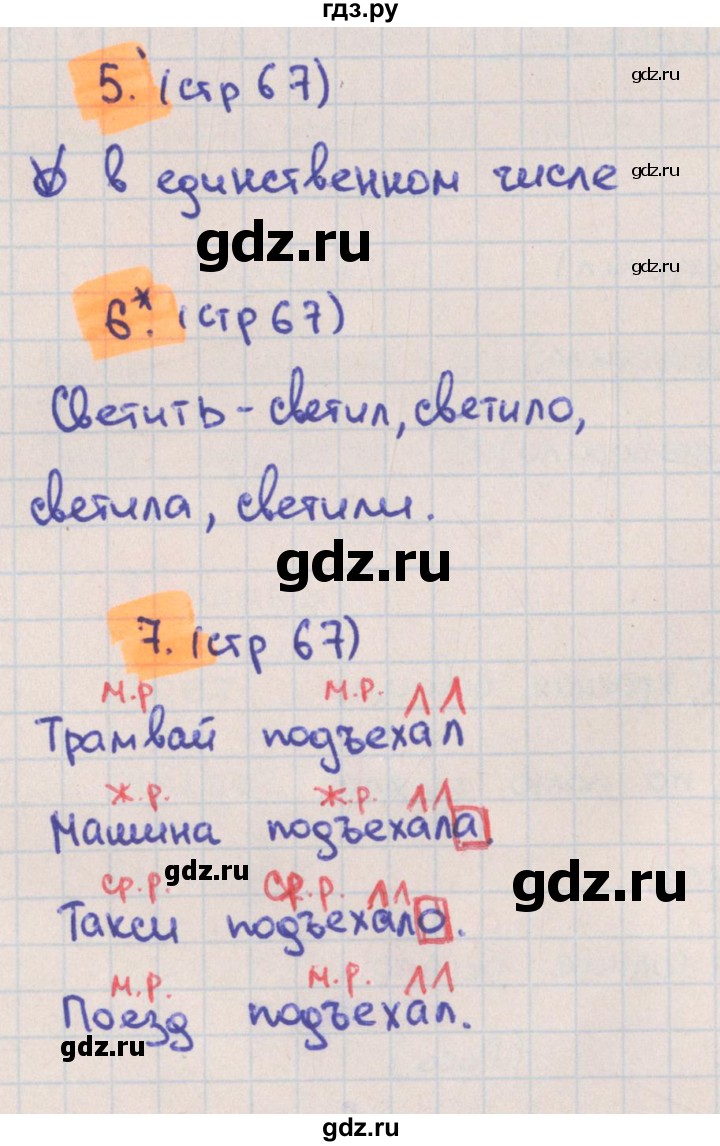 гдз.ру
5. (стр 67)
gdz.ru
в единственном числе
gdz.ru
gdz.ru
gdz.ru
6*. (стр 67)
Светить - светил, светило,
светила, светили.
gdz.ru
7. (стр 67)
м.р м.р.
Трамвай подъехал
ж.р. ж.р.
Машина подъехала.
gdz.ru
gdz.ru
ср.р. ср.р.
Такси подъехало.
м.р. м.р.
Поезд подъехал.
gdz.ru
гдз.ру